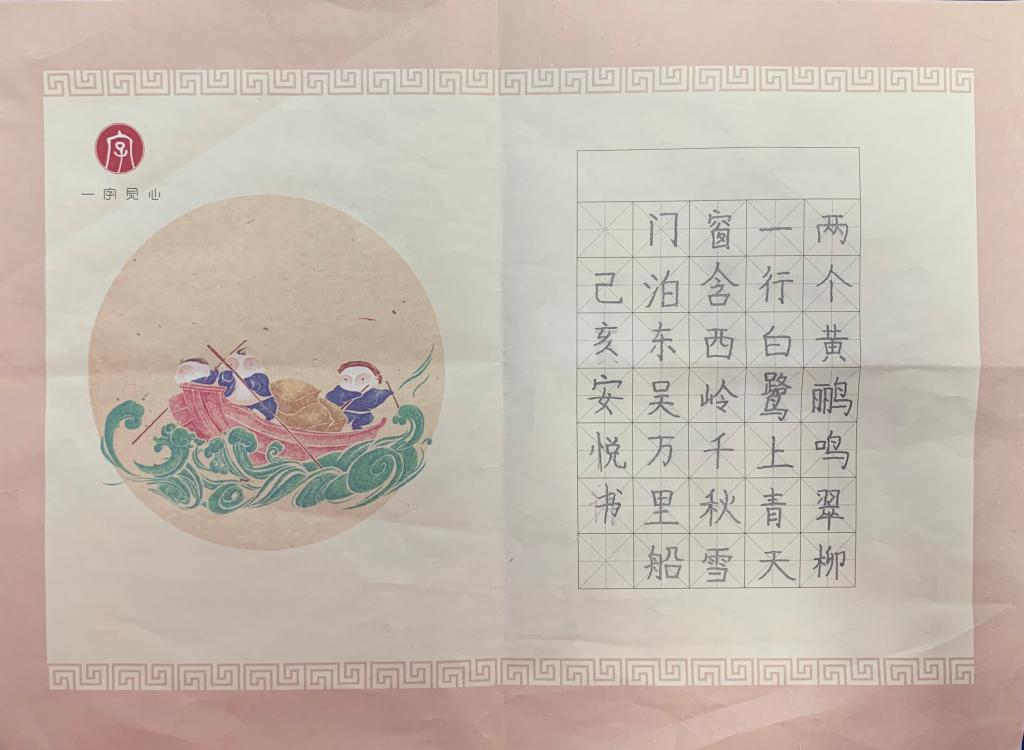 字
一字见心
两个黄鹂鸣翠柳
一行白鹭上青天
窗含西岭千秋雪
门泊东吴万里船
己亥安悦书